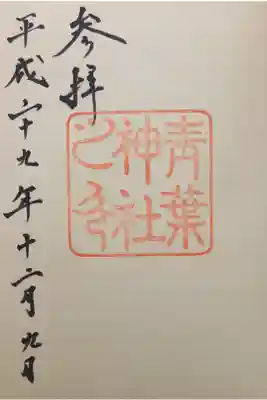 参拝
青葉
神社
之印
平成二十九年十二月九日